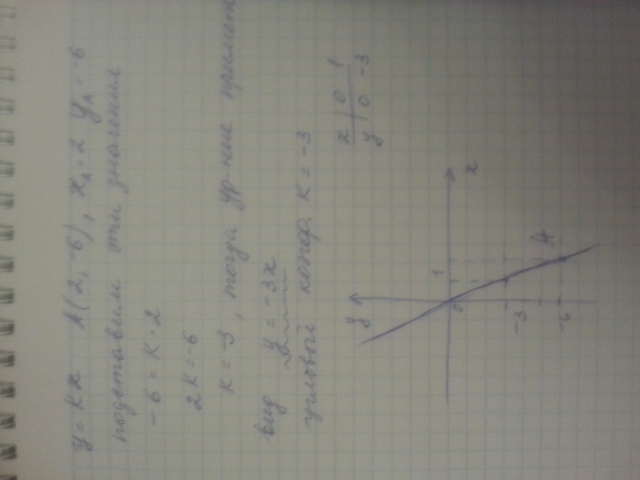 y = kx   A(2; -6), xA = 2 yA = -6
подставим эти значения
-6 = k·2
2k = -6
k = -3, тогда ур-ние примет
вид y = -3x
угловой коэф. k = -3
x | 0 | 1
y | 0 | -3
y
x
0
1
-3
-6
A